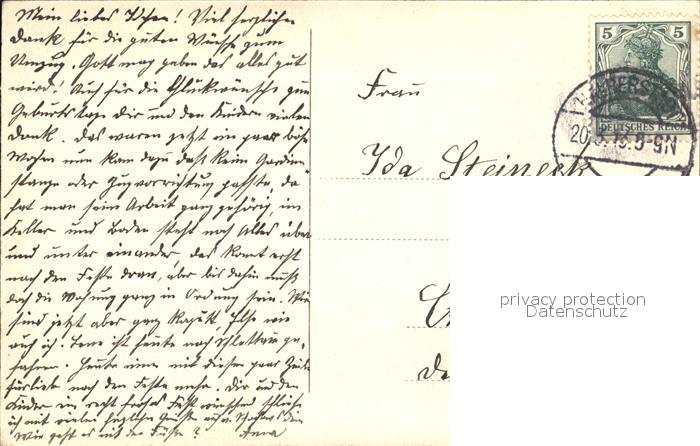 Mein liebes Idchen! Viel herzlichen
Dank für die guten Wünsche zum
Umzug. Gott mag geben das alles gut
wird! Auch für die Glückwünsche zum
Geburtstage dir und den Kindern vielen
Dank. Das waren jetzt ein paar böse
Wochen nun kam dazu daß keine Gardinen
stange oder Zugvorrichtung paßte, da
hat man sein Arbeit ganz gehörig, im
Keller und Boden steht noch Alles über
und unter einander, das kommt erst
nach dem Feste dran, aber bis dahin muß
doch die Wohnung ganz in Ordnung sein. Wir
sind jetzt aber ganz kaputt, Ilse wie
auch ich. Lene ist heute nach ge-
fahren. Heute nur mit diesen paar Zeilen
fürlieb nach dem Feste mehr. Dir und den
Kindern ein recht frohes Fest wünschend schließe
ich mit vielen herzlichen Grüßen
Wie geht es mit den Füßen? Anna
Frau
Ida Steineck
5 5
DEUTSCHES REICH
HALBERSTADT
20. 5-9N
privacy protection
Datenschutz